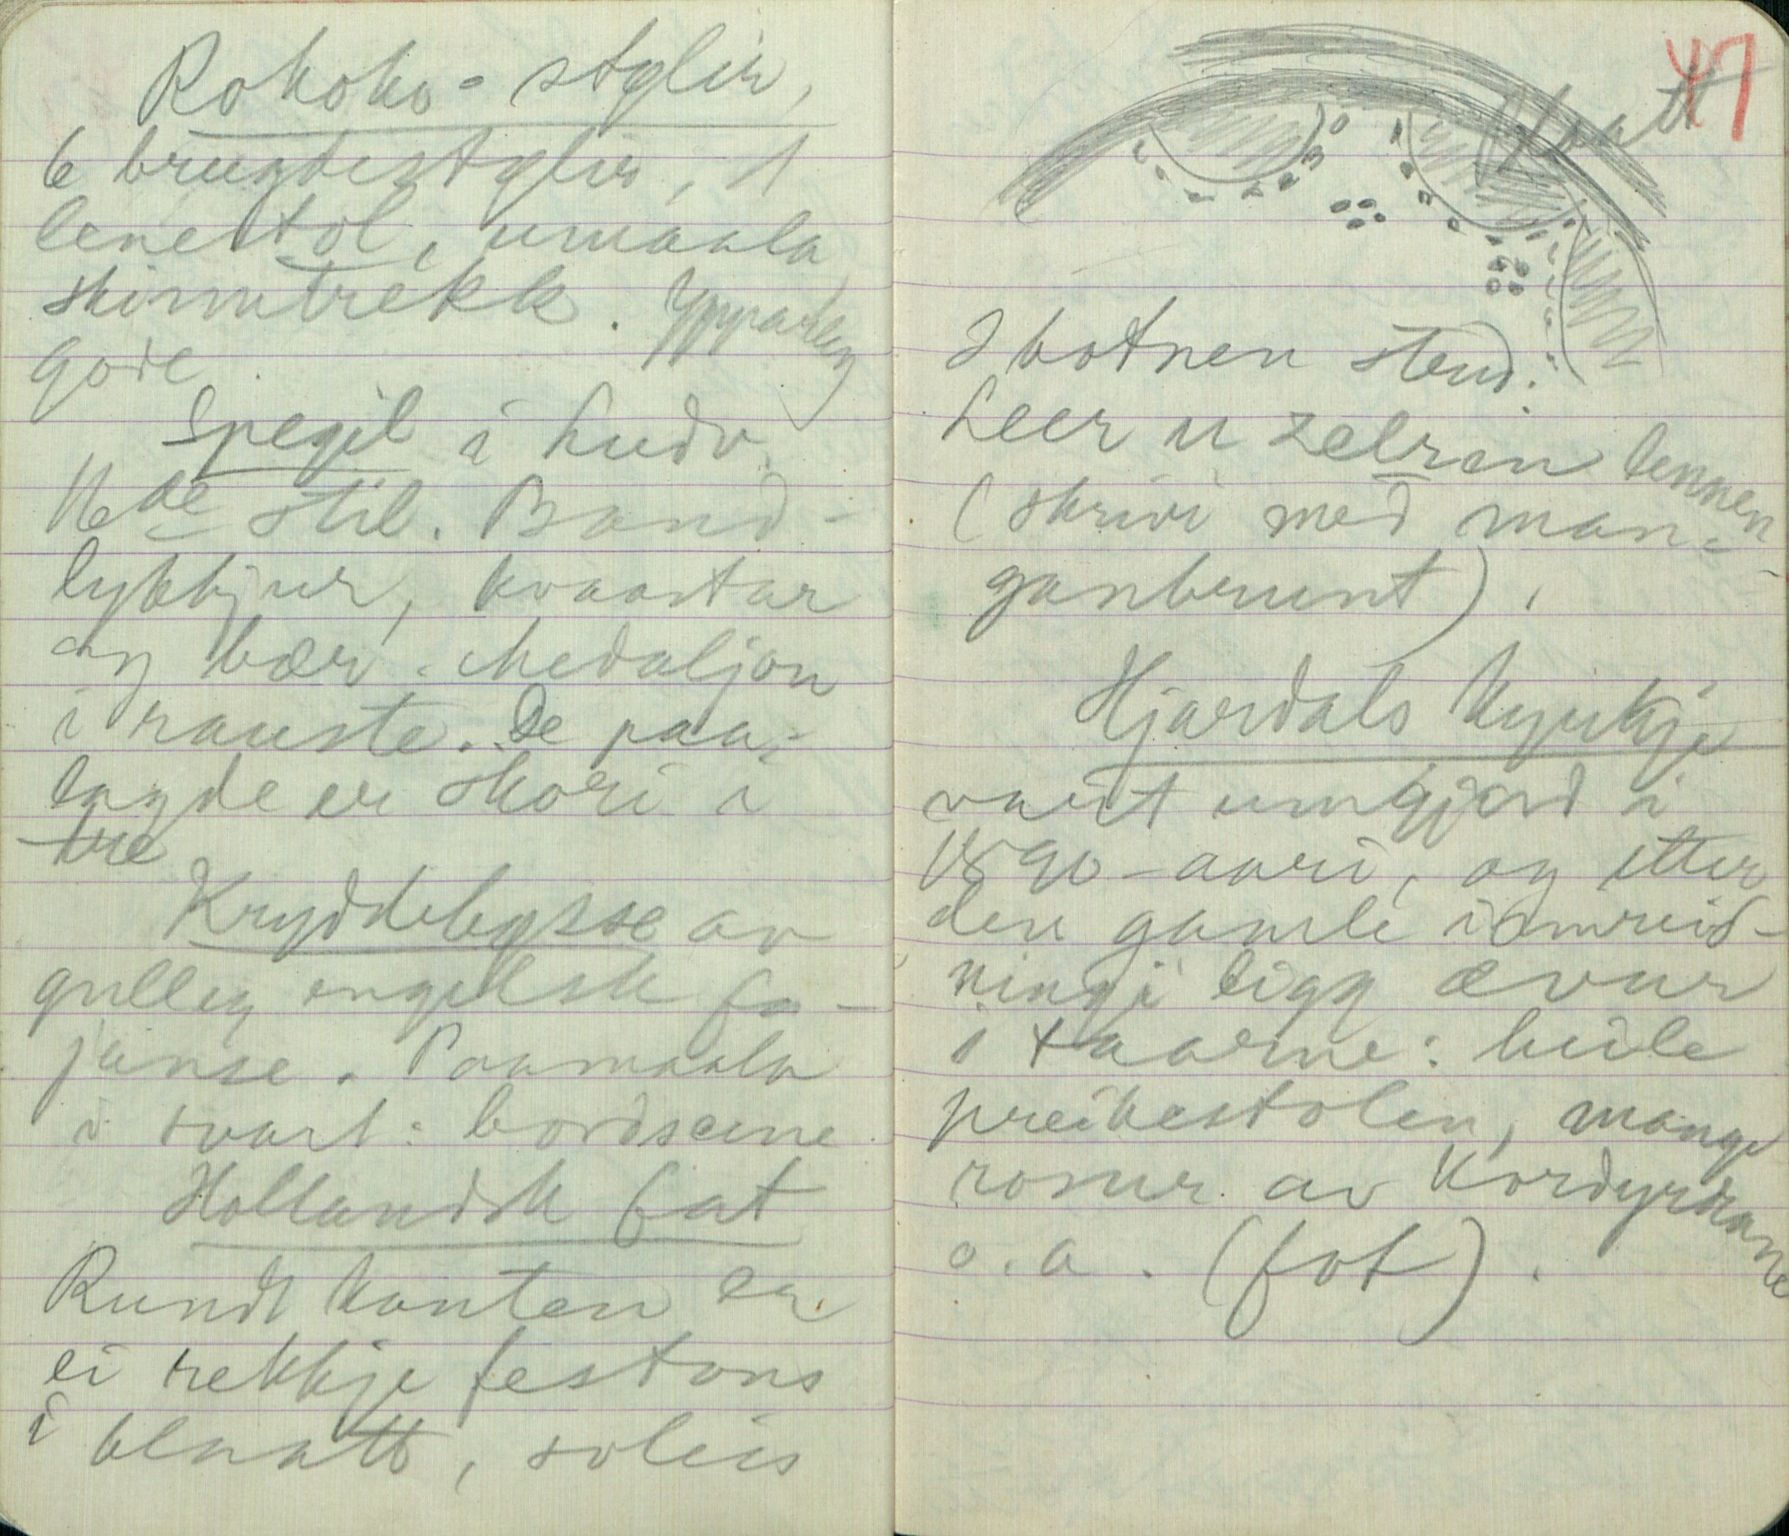 Rokoko-stylir,
6 brugdestylir, 1
lenestol, umaala
skinntrekk. Ypparleg
gode.
Spegil i Ludv.
16de stil. Band-
lykkjur, kvastar
og bær. Medaljon
i rauste. De paa-
lagde er skori i
tre
Kryddebysse av
gulleg engelsk fa-
janse. Paamaala
i svart: bordscene
Hollandsk fat
Rundt kanten er
ei rekkje festons
i blaatt, soleis
47
blaatt
I botnen stend:
Leer u zelven kennen
(skrivi med man-
ganbrunt).
Hjardals kyrkje
vart umgjord i
1890-aari, og etter
den gamle innreid-
ningi ligg ævur
i taarne: heile
preikestolen, mange
rosur av
o.a. (fot).